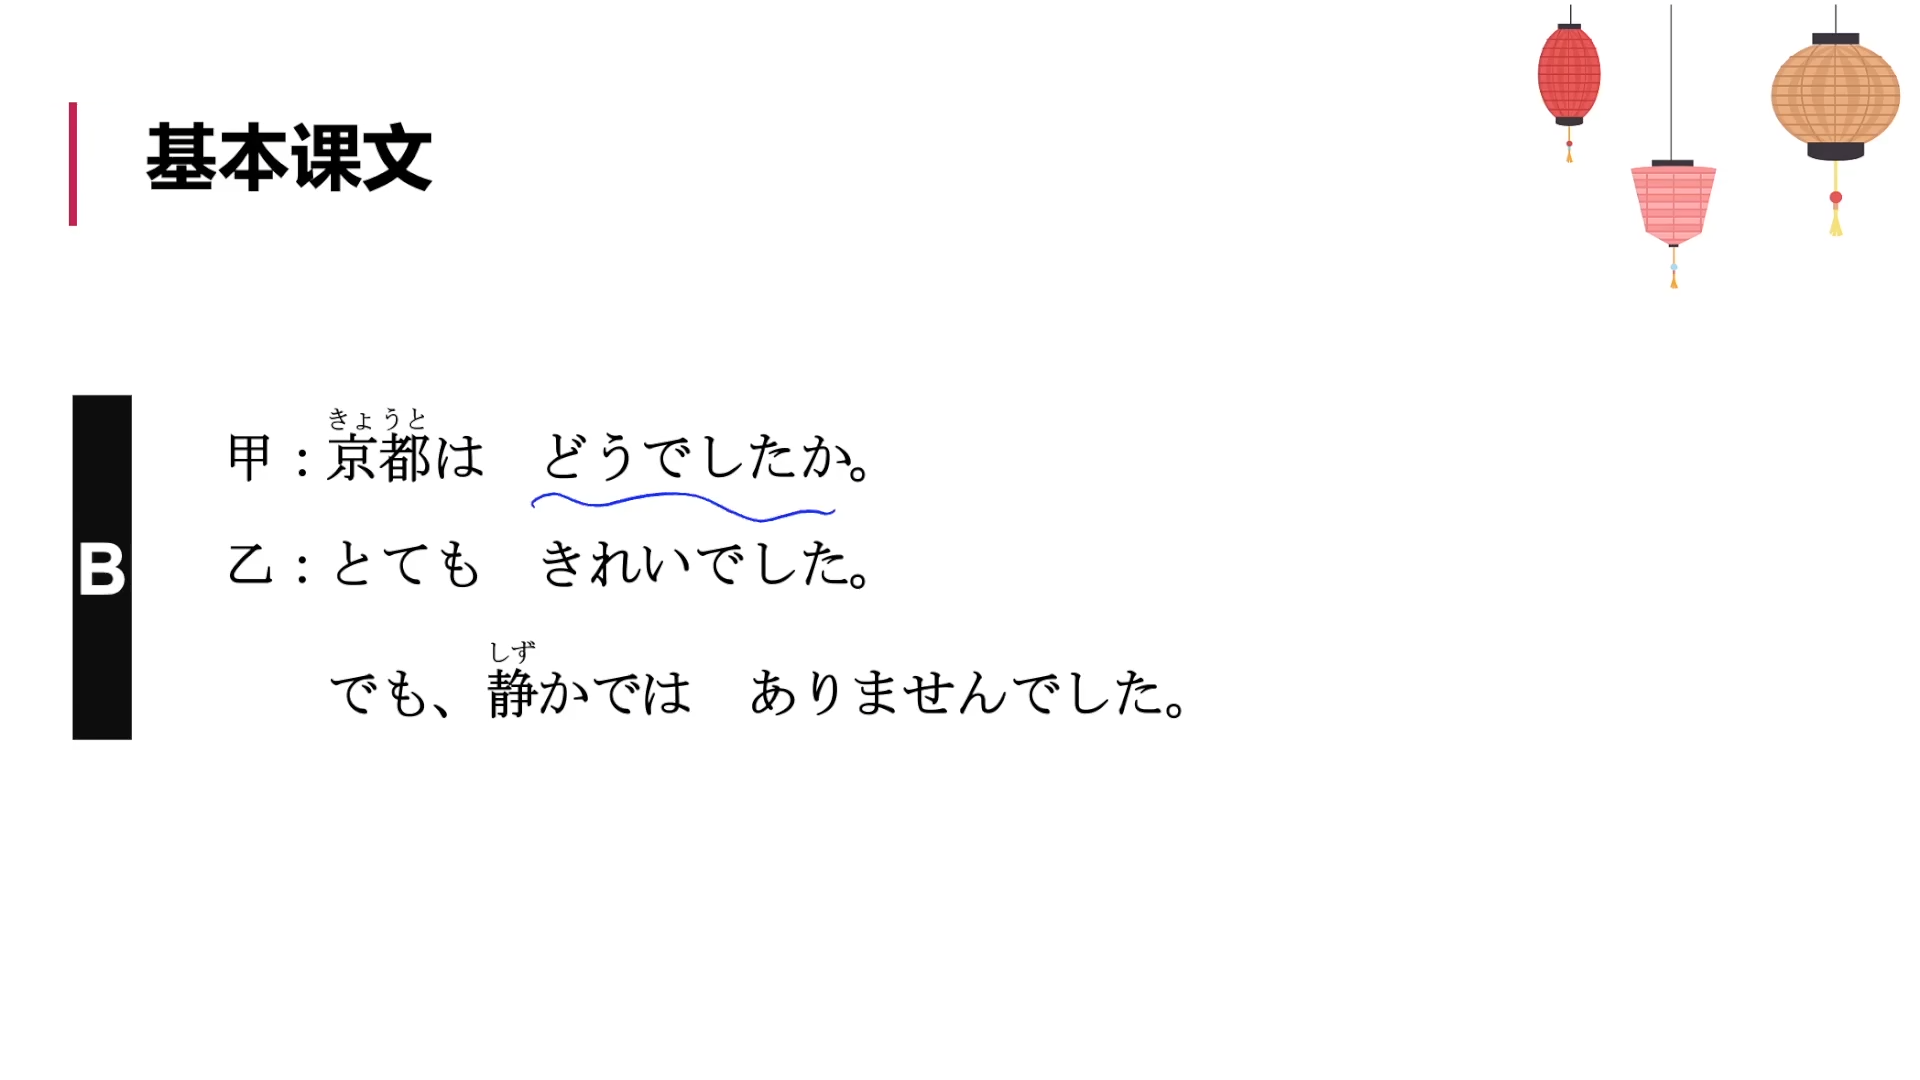 基本课文
B
きょうと
甲：京都は　どうでしたか。
乙：とても　きれいでした。
しず
でも、静かでは　ありませんでした。